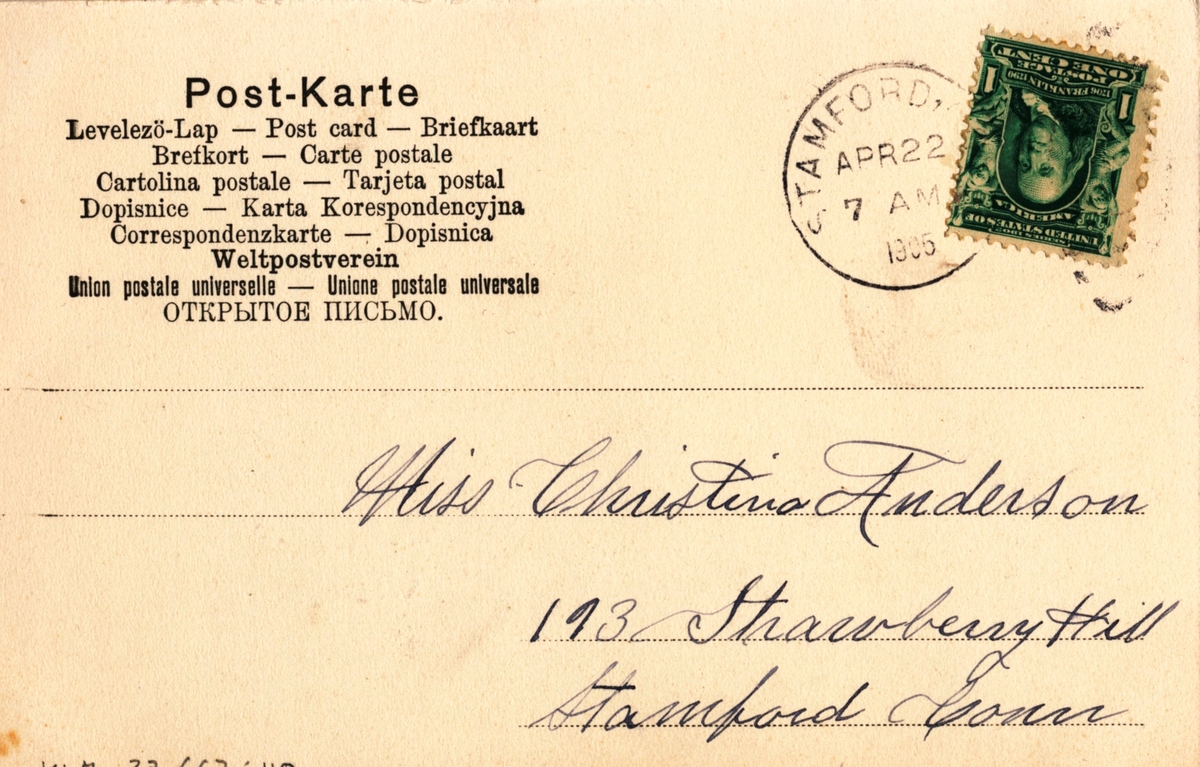 Post-Karte
Levelezö-Lap — Post card — Briefkaart
Brefkort — Carte postale
Cartolina postale — Tarjeta postal
Dopisnice — Karta Korespondencyjna
Correspondenzkarte — Dopisnica
Weltpostverein
Union postale universelle — Unione postale universale
ОТКРЫТОЕ ПИСЬМО.
STAMFORD,
APR 22
7 AM
1905
SERIES 1902
UNITED STATES OF
AMERICA
1706 FRANKLIN 1790
1 1
POSTAGE
ONE CENT
Miss Christina Anderson
193 Strawberry Hill
Stamford Conn